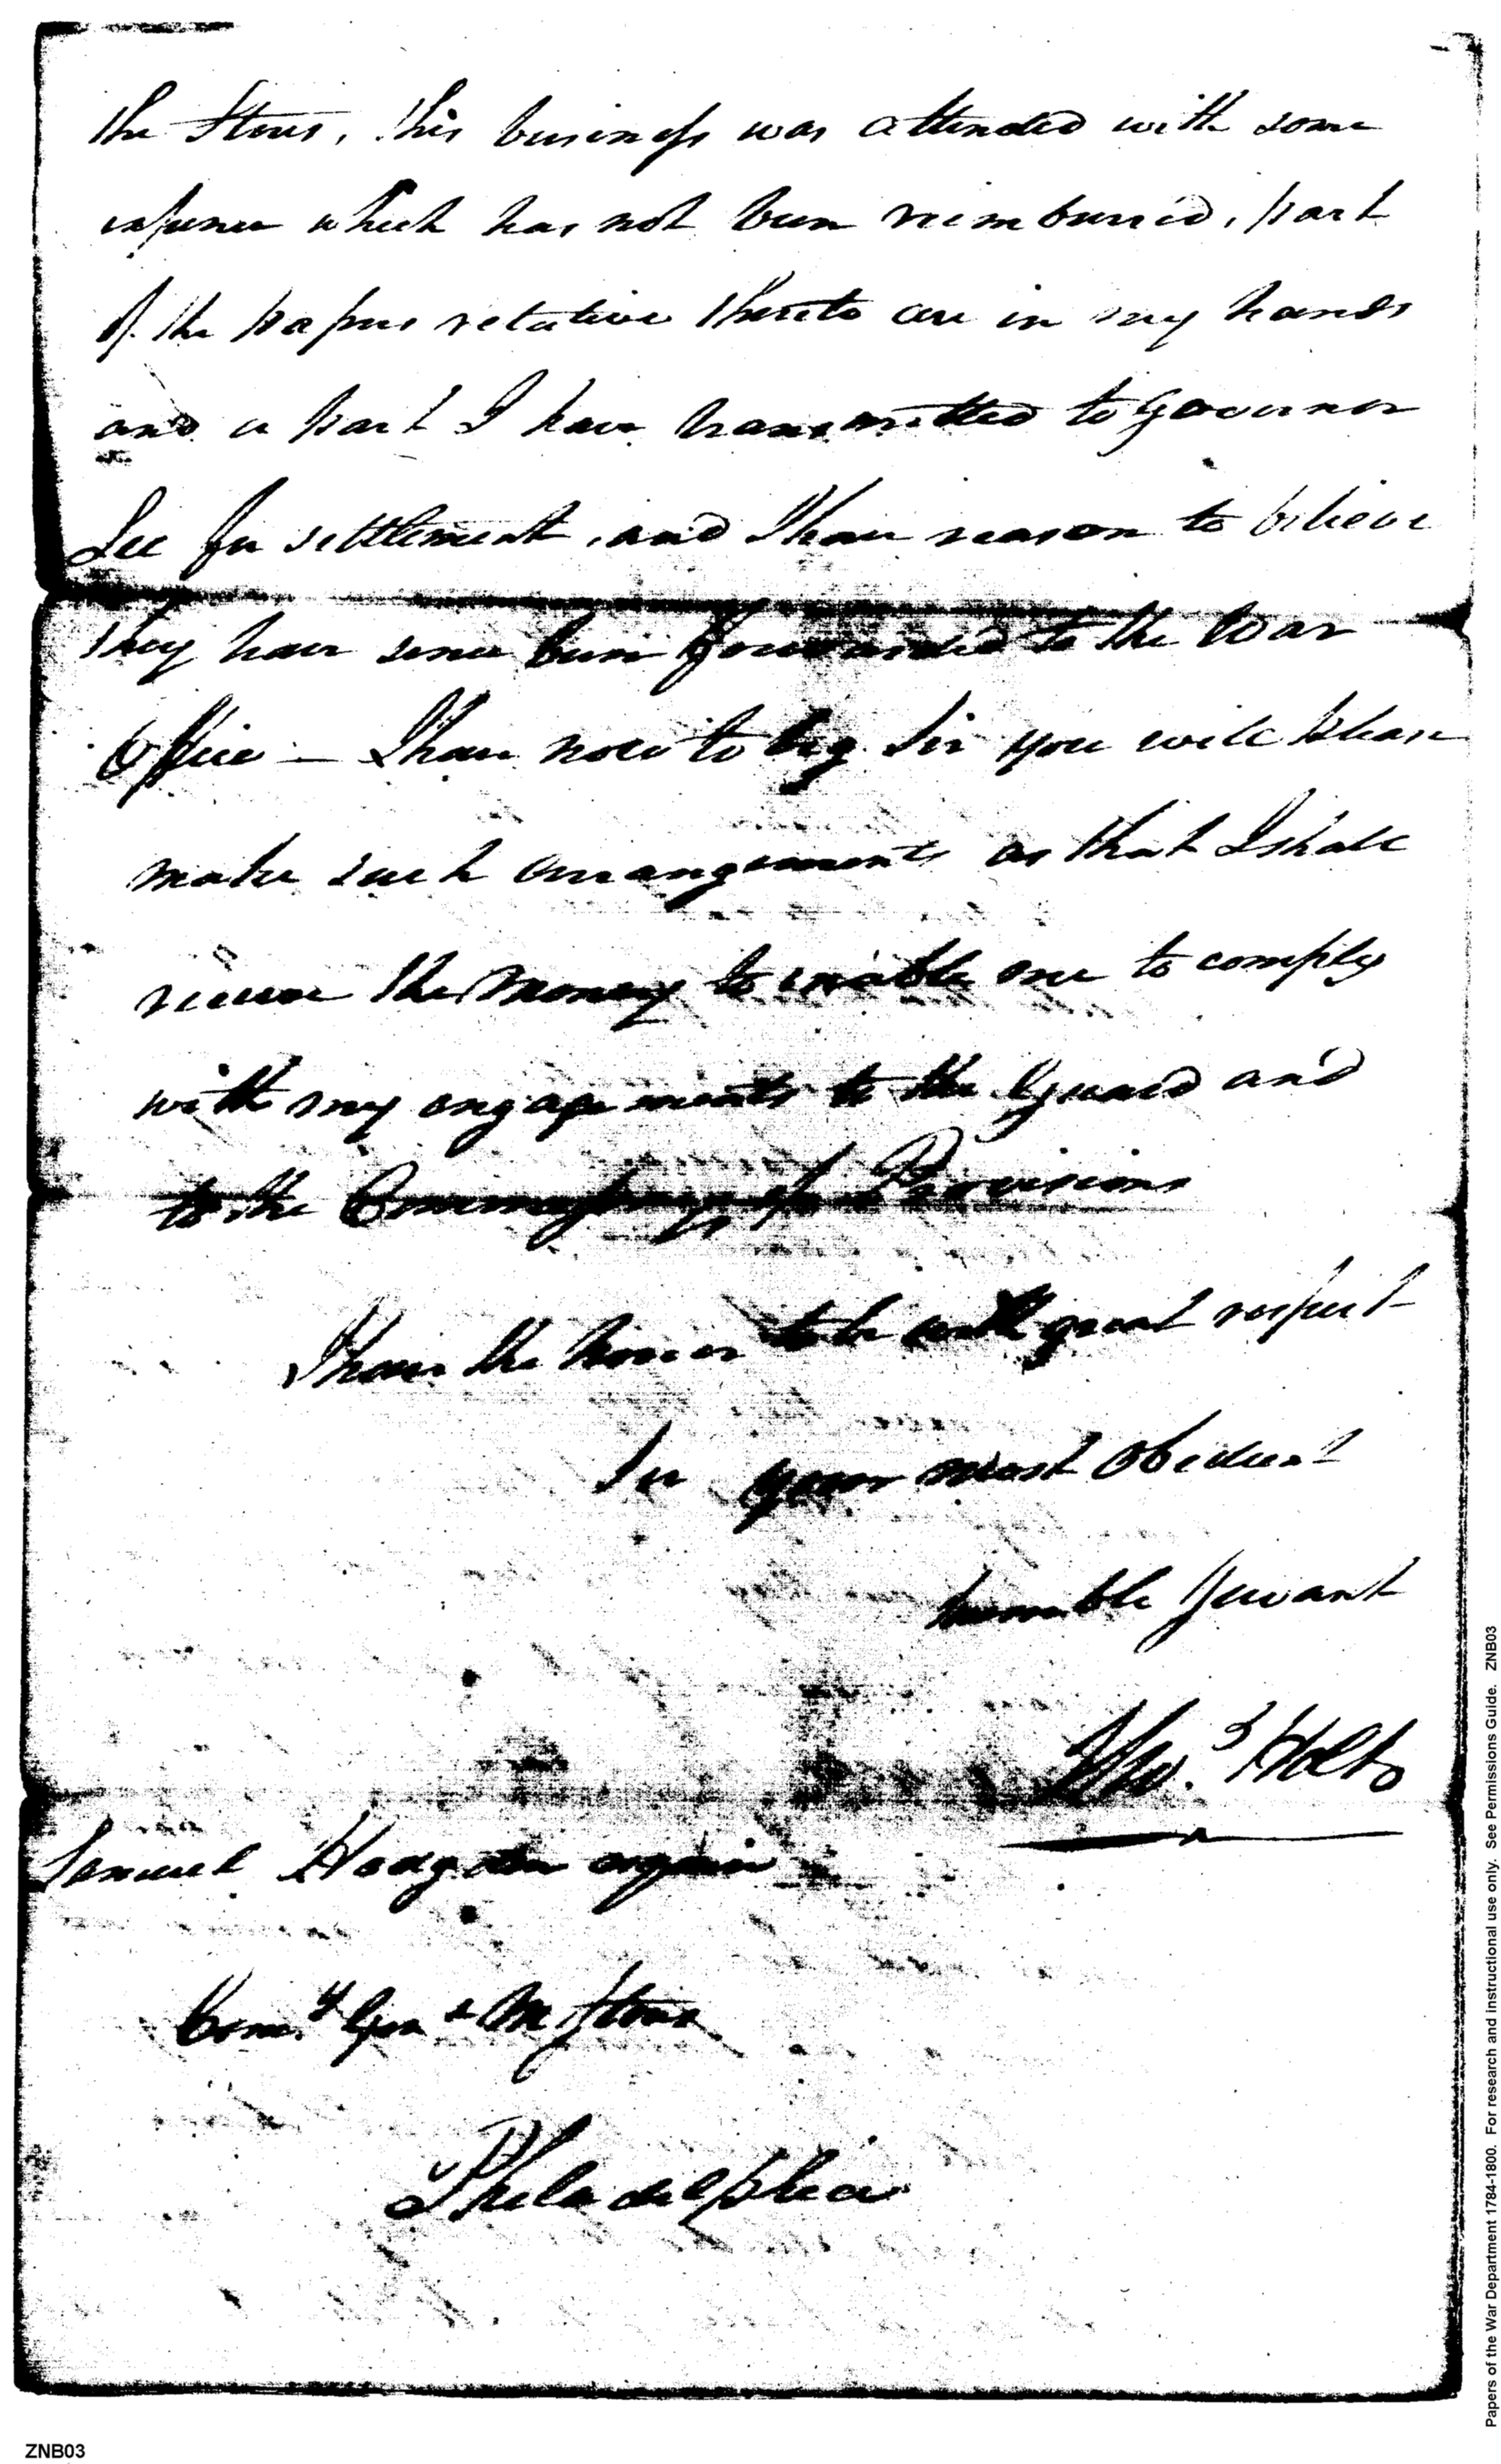 the Stores, this business was attended with some
expence which has not been reimbursed, part
of the papers relative thereto are in my hands
and a part I have transmitted to Governor
Lee for settlement, and I have reason to believe
they have since been forwarded to the War
Office — I have now to beg Sir you will please
make such arrangements as that I shall
receive the Money to enable me to comply
with my engagements to the Guard and
to the Commissary of Provisions
I have the honor to be with great respect
Sir your most Obedient
humble Servant
Tho.s Holt
Samuel Hodgdon esquire
Com.y Gen.l M Stores
Philadelphia
Papers of the War Department 1784-1800. For research and instructional use only. See Permissions Guide. ZNB03
ZNB03